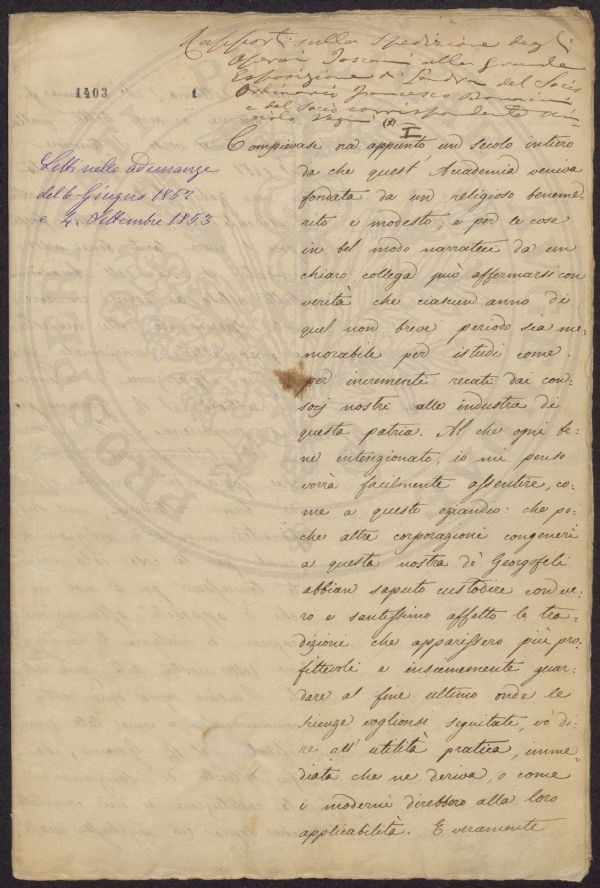 Rapporti sulla Spedizione degli
Operai Toscani alla grande
Esposizione di Londra del Socio
Ordinario Francesco Bonaini
e del Socio corrispondente An-
giolo Vegni (*)
1403
1
I
Letti nelle adunanze
del 6 Giugno 1852
e 4. Settembre 1853
Compievasi ora appunto un secolo intiero
da che quest' Academia veniva
fondata da un religioso beneme-
rito e modesto; e per le cose
in bel modo narratece da un
chiaro collega può affermarsi con
verità che ciascun anno di
quel non breve periodo sia me-
morabile per istudi come
per incrementi recati dai con-
socj nostri alle industra di
questa patria. Al che ogni be-
ne intenzionato, io mi penso
vorrà facilmente assentire, co-
me a questo eziandio: che po-
che altre corporazioni congeneri
a questa nostra de' Georgofili
abbian saputo custodire con ve-
ro e santissimo affetto le tra-
dizioni che apparissero più pro-
fittevoli e insiememente guar-
dare al fine ultimo onde le
scienze voglionsi seguitate, vo' di-
re, all' utilità pratica, imme-
diata che ne deriva, o come
i moderni direbbero alla loro
applicabilità. E veramente